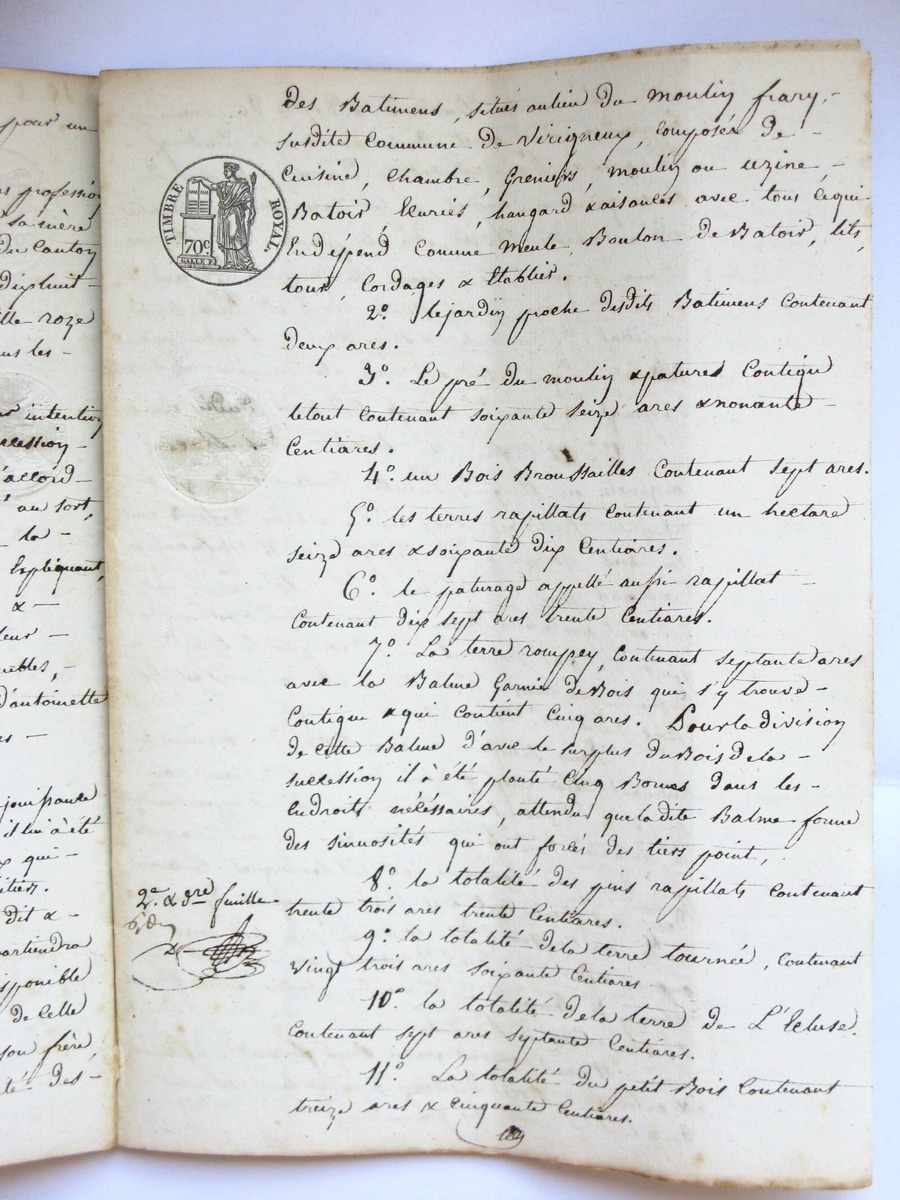 pour un
profession
sa mère
du Canton
dixhuit -
roze
les -
intentive
-
d'accord -
au sort,
la -
Expliquant,
& -
leur -
meubles, -
d'antoinette
jouissance
il lui à été
qui -
dit & -
appartiendra
disponible
de Celle
son frère,
des -
TIMBRE ROYAL
70c.
des Batimens, situés aulieu du moulin frary, -
susdite Commune de Virigneux, Composés de -
Cuisine, Chambre, Greniers, moulin ou uzine -
Batoir Ecuries, hangard & aisances avec tous cequi
En dépend Comme Meule, Boulon de Batoir, lits,
tour, Cordages & Etablir.
2º. lejardin proche desdits Batimens Contenant
deux ares.
3º. Le pré du moulin & patures Contigu
letout Contenant soixante seize ares & nonante -
Centiares.
4º. un Bois Broussailles Contenant sept ares.
5º. les terres rapillats Contenant un hectare
seize ares & soixante dix Centiares.
6º. le paturage appellé aussi rapillat -
Contenant dix sept ares trente Centiares.
7º. La terre rompey, Contenant septante ares
avec la Balme Garnie de Bois qui s'y trouve -
Contigue & qui Contient Cinq ares. Pour la division
de Cette Balme d'avec le surplus du Bois de la -
succession il à été planté Cinq Bornes dans les -
Endroits nécéssaires, attendu que ladite Balme forme
des sinuosités qui ont forcés des tiers point,
8º. la totalité des pins rapillats Contenant
trente trois ares trente Centiares.
9º. la totalité de la terre tournée, Contenant
vingt trois ares soixante Centiares.
10º. la totalité de la terre de L'Ecluse.
Contenant sept ares septante Centiares.
11º. La totalité du petit Bois Contenant
treize ares & Cinquante Centiares.
2e. & dre feuille